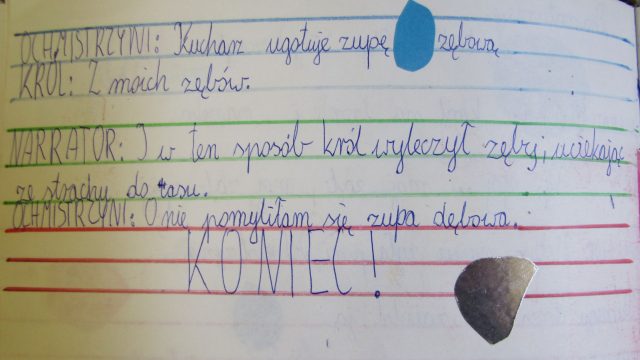 OCHMISTRZYNI: Kucharz ugotuje zupę zębową
KRÓL: Z moich zębów.
NARRATOR: I w ten sposób król wyleczył zęby, uciekając
ze strachu do lasu.
OCHMISTRZYNI: O nie pomyliłam się zupa dębowa.
KONIEC!